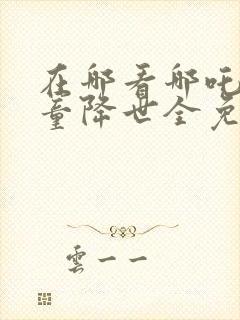 在哪看哪吒
童降世全免
雲一一